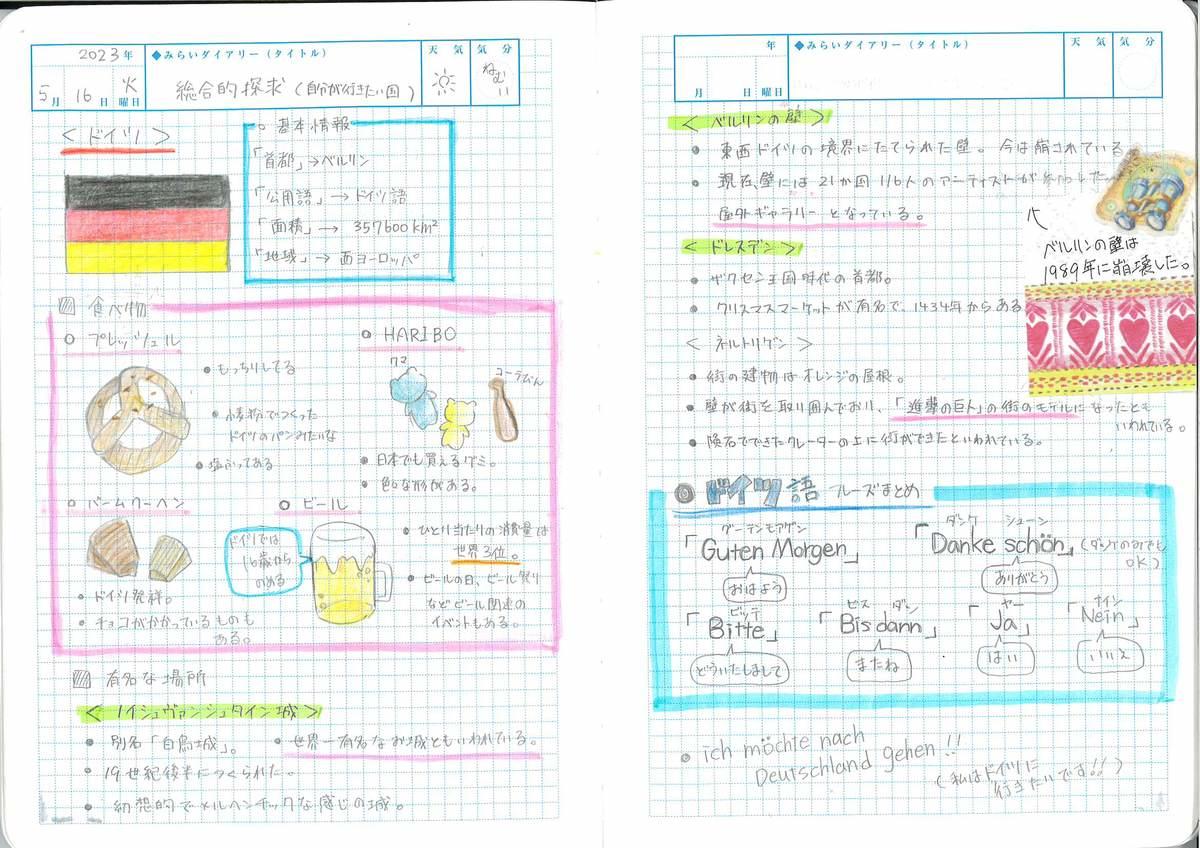 2023年
5月 16日 火曜日
◆みらいダイアリー（タイトル）
総合的探求（自分が行きたい国）
天気
気分
ねむい
＜ドイツ＞
○ 基本情報
「首都」→ベルリン
「公用語」→ドイツ語
「面積」→ 357600km²
「地域」→西ヨーロッパ
食べ物
○ プレッツェル
・もっちりしてる
・小麦粉でつくった
ドイツのパンみたいな
・塩ふってある
○ HARIBO
クマ
コーラびん
・日本でも買えるグミ。
・色々な形がある。
○ バームクーヘン
・ドイツ発祥。
・チョコがかかっているものも
ある。
○ ビール
ドイツでは
16歳から
のめる
・ひとり当たりの消費量は
世界3位。
・ビールの日、ビール祭り
などビール関連の
イベントもある。
有名な場所
＜ノイシュヴァンシュタイン城＞
・別名「白鳥城」。
・世界一有名なお城ともいわれている。
・19世紀後半につくられた。
・幻想的でメルヘンチックな感じの城。
年
月 日 曜日
◆みらいダイアリー（タイトル）
天気
気分
＜ベルリンの壁＞
・東西ドイツの境界にたてられた壁。今は崩されている
・現在、壁には21か国116人のアーティストが参加した
屋外ギャラリーとなっている。
ベルリンの壁は
1989年に崩壊した。
＜ドレスデン＞
・ザクセン王国時代の首都。
・クリスマスマーケットが有名で、1434年からある
＜ネルトリゲン＞
・街の建物はオレンジの屋根。
・壁が街を取り囲んでおり、「進撃の巨人」の街のモデルになったとも
いわれている。
・隕石でできたクレーターの上に街ができたといわれている。
ドイツ語 フレーズまとめ
グーテンモアゲン
「Guten Morgen」
おはよう
ダンケ シェーン
「Danke schön」（ダンケのみでも
OK）
ありがとう
ビッテ
「Bitte」
どういたしまして
ビス ダン
「Bis dann」
またね
ヤー
「Ja」
はい
ナイン
「Nein」
いいえ
・ich möchte nach
Deutschland gehen!!
（私はドイツに
行きたいです!!）